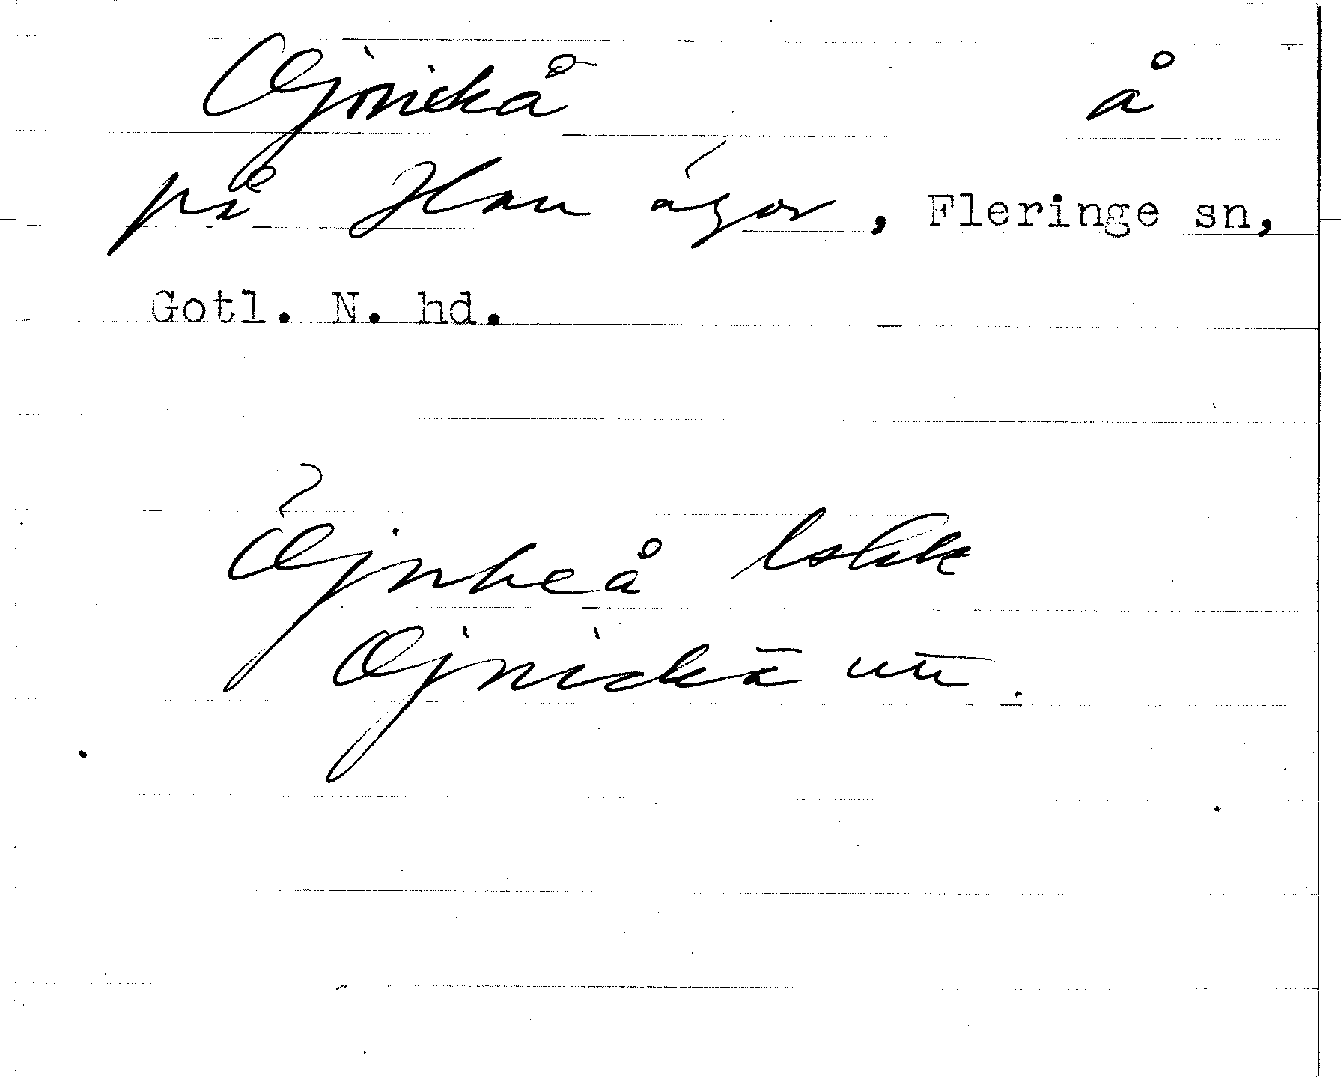 Ojnickå å
på Hau ägor, Fleringe sn,
Gotl. N. hd.
Ojnheå lskk
Ojnickā utt.